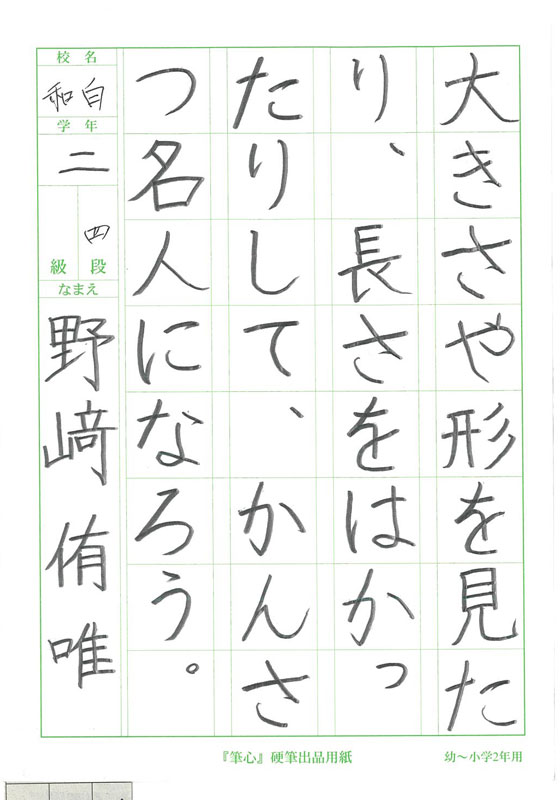 大きさや形を見た
り、長さをはかっ
たりして、かんさ
つ名人になろう。
校名
和白
学年
二
四
級段
なまえ
野﨑侑唯
『筆心』硬筆出品用紙
幼〜小学2年用